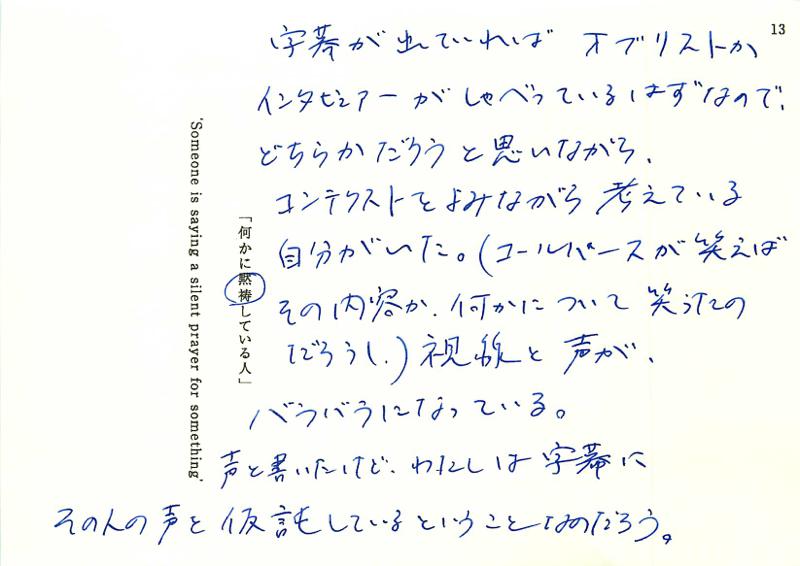 13
字幕が出ていれば オブリストか
インタビュアーがしゃべっているはずなので、
どちらかだろうと思いながら、
コンテクストをよみながら考えている
自分がいた。(コールハースが笑えば
その内容か、何かについて笑うたの
だろうし、) 視線と声が、
バラバラになっている。
声と書いたけど、わたしは字幕に
その人の声と仮託しているということなのだろう。
「何かに黙祷している人」
'Someone is saying a silent prayer for something'